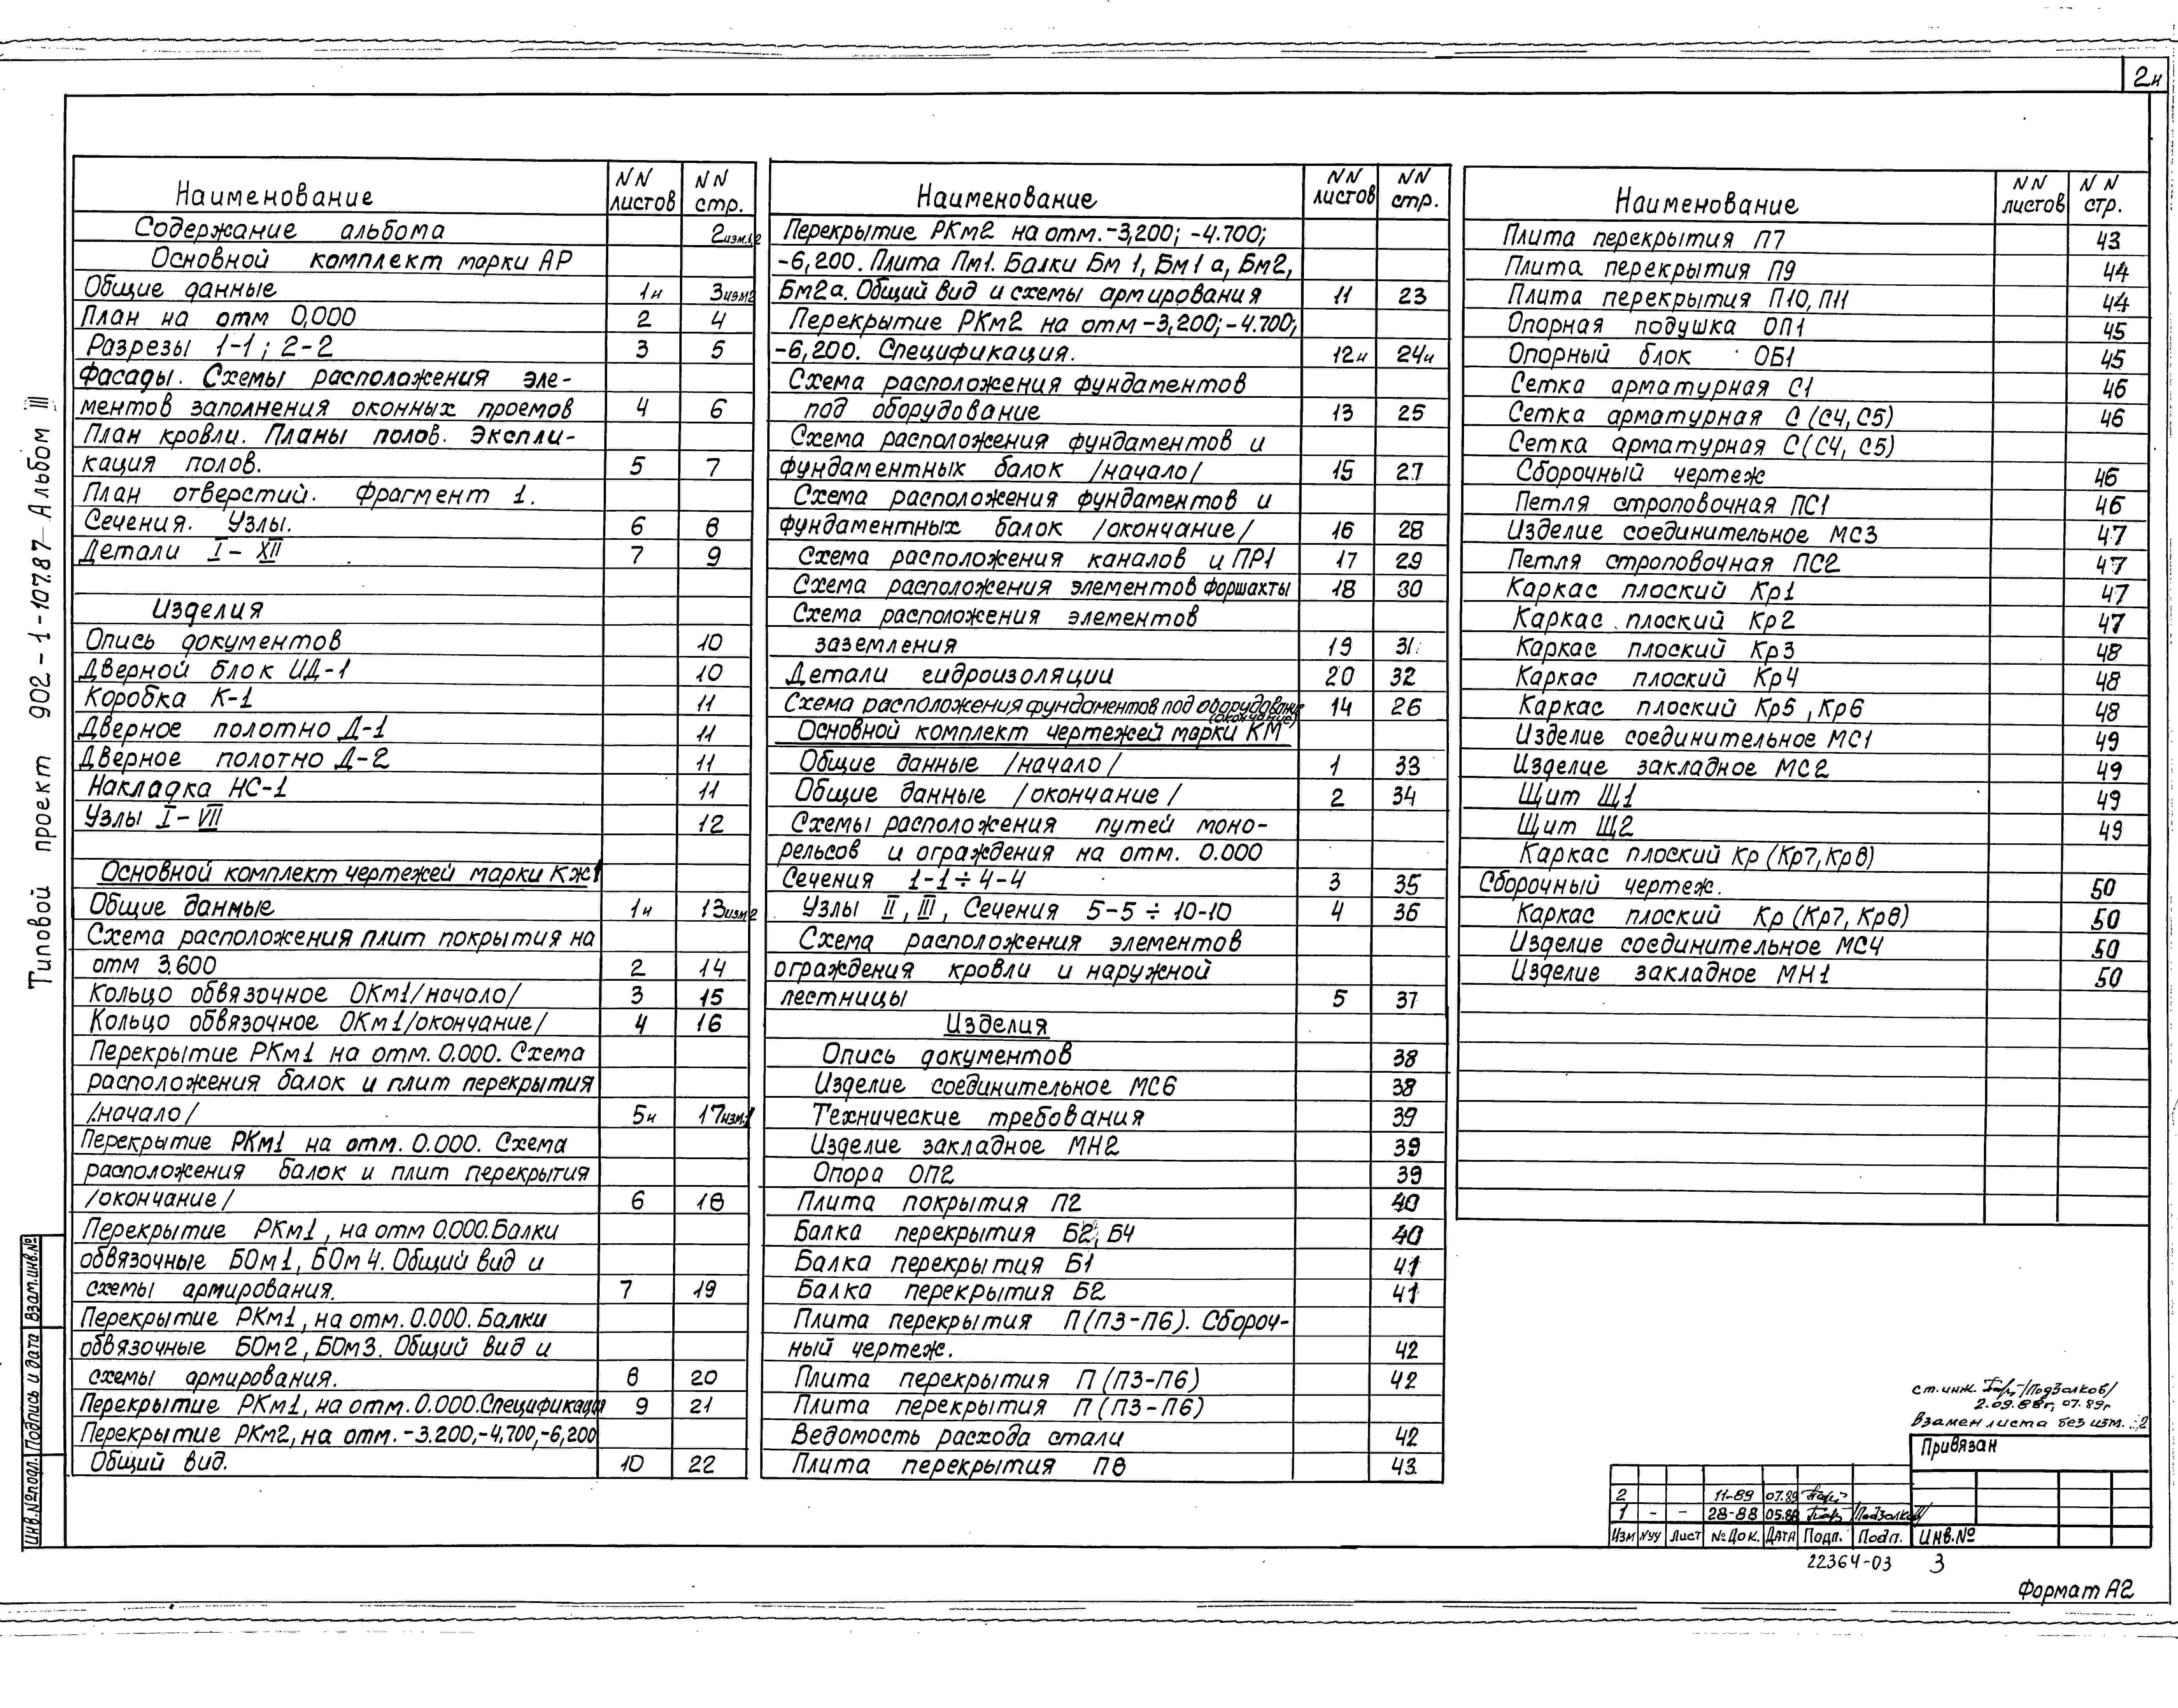 2и
Типовой проект 902-1-107.87 Альбом III
Наименование NN листов NN стр.
Содержание альбома 2изм.1,2
Основной комплект марки АР
Общие данные 1и 3изм2
План на отм 0,000 2 4
Разрезы 1-1; 2-2 3 5
Фасады. Схемы расположения эле-
ментов заполнения оконных проемов 4 6
План кровли. Планы полов. Экспли-
кация полов. 5 7
План отверстий. Фрагмент 1.
Сечения. Узлы. 6 8
Детали I-XII 7 9
Изделия
Опись документов 10
Дверной блок ИД-1 10
Коробка К-1 11
Дверное полотно Д-1 11
Дверное полотно Д-2 11
Накладка НС-1 11
Узлы I-VII 12
Основной комплект чертежей марки КЖ1
Общие данные 1и 13изм2
Схема расположения плит покрытия на
отм 3,600 2 14
Кольцо обвязочное ОКм1/начало/ 3 15
Кольцо обвязочное ОКм1/окончание/ 4 16
Перекрытие РКм1 на отм. 0.000. Схема
расположения балок и плит перекрытия
/начало/ 5и 17изм.1
Перекрытие РКм1 на отм. 0.000. Схема
расположения балок и плит перекрытия
/окончание/ 6 18
Перекрытие РКм1, на отм 0.000. Балки
обвязочные БОм1, БОм4. Общий вид и
схемы армирования. 7 19
Перекрытие РКм1, на отм. 0.000. Балки
обвязочные БОм2, БОм3. Общий вид и
схемы армирования. 8 20
Перекрытие РКм1, на отм. 0.000. Спецификация 9 21
Перекрытие РКм2, на отм. -3.200, -4,700, -6,200
Общий вид. 10 22
Наименование NN листов NN стр.
Перекрытие РКм2 на отм. -3,200; -4.700;
-6,200. Плита Пм1. Балки Бм1, Бм1а, Бм2,
Бм2а. Общий вид и схемы армирования 11 23
Перекрытие РКм2 на отм -3,200; -4.700;
-6,200. Спецификация. 12и 24и
Схема расположения фундаментов
под оборудование 13 25
Схема расположения фундаментов и
фундаментных балок /начало/ 15 27
Схема расположения фундаментов и
фундаментных балок /окончание/ 16 28
Схема расположения каналов и ПР1 17 29
Схема расположения элементов форшахты 18 30
Схема расположения элементов
заземления 19 31
Детали гидроизоляции 20 32
Схема расположения фундаментов под оборудование (окончание) 14 26
Основной комплект чертежей марки КМ
Общие данные /начало/ 1 33
Общие данные /окончание/ 2 34
Схемы расположения путей моно-
рельсов и ограждения на отм. 0.000
Сечения 1-1÷4-4 3 35
Узлы II, III, Сечения 5-5÷10-10 4 36
Схема расположения элементов
ограждения кровли и наружной
лестницы 5 37
Изделия
Опись документов 38
Изделие соединительное МС6 38
Технические требования 39
Изделие закладное МН2 39
Опора ОП2 39
Плита покрытия П2 40
Балка перекрытия Б2, Б4 40
Балка перекрытия Б1 41
Балка перекрытия Б2 41
Плита перекрытия П(П3-П6). Сбороч-
ный чертеж. 42
Плита перекрытия П(П3-П6) 42
Плита перекрытия П(П3-П6)
Ведомость расхода стали 42
Плита перекрытия П8 43
Наименование NN листов NN стр.
Плита перекрытия П7 43
Плита перекрытия П9 44
Плита перекрытия П10, П11 44
Опорная подушка ОП1 45
Опорный блок ОБ1 45
Сетка арматурная С1 46
Сетка арматурная С(С4, С5) 46
Сетка арматурная С(С4, С5)
Сборочный чертеж 46
Петля строповочная ПС1 46
Изделие соединительное МС3 47
Петля строповочная ПС2 47
Каркас плоский Кр1 47
Каркас плоский Кр2 47
Каркас плоский Кр3 48
Каркас плоский Кр4 48
Каркас плоский Кр5, Кр6 48
Изделие соединительное МС1 49
Изделие закладное МС2 49
Щит Щ1 49
Щит Щ2 49
Каркас плоский Кр(Кр7, Кр8)
Сборочный чертеж. 50
Каркас плоский Кр(Кр7, Кр8) 50
Изделие соединительное МС4 50
Изделие закладное МН1 50
ст.инж. /Подзолков/
2.09.88г, 07.89г
Взамен листа без изм. 2
Привязан
2 11-89 07.89
1 - - 28-88 05.88 /Подзолков/
Изм Nуч Лист №Док. Дата Подп. Подп. Инв.№
22364-03 3
Формат А2
Инв.№подл. Подпись и дата Взам.инв.№